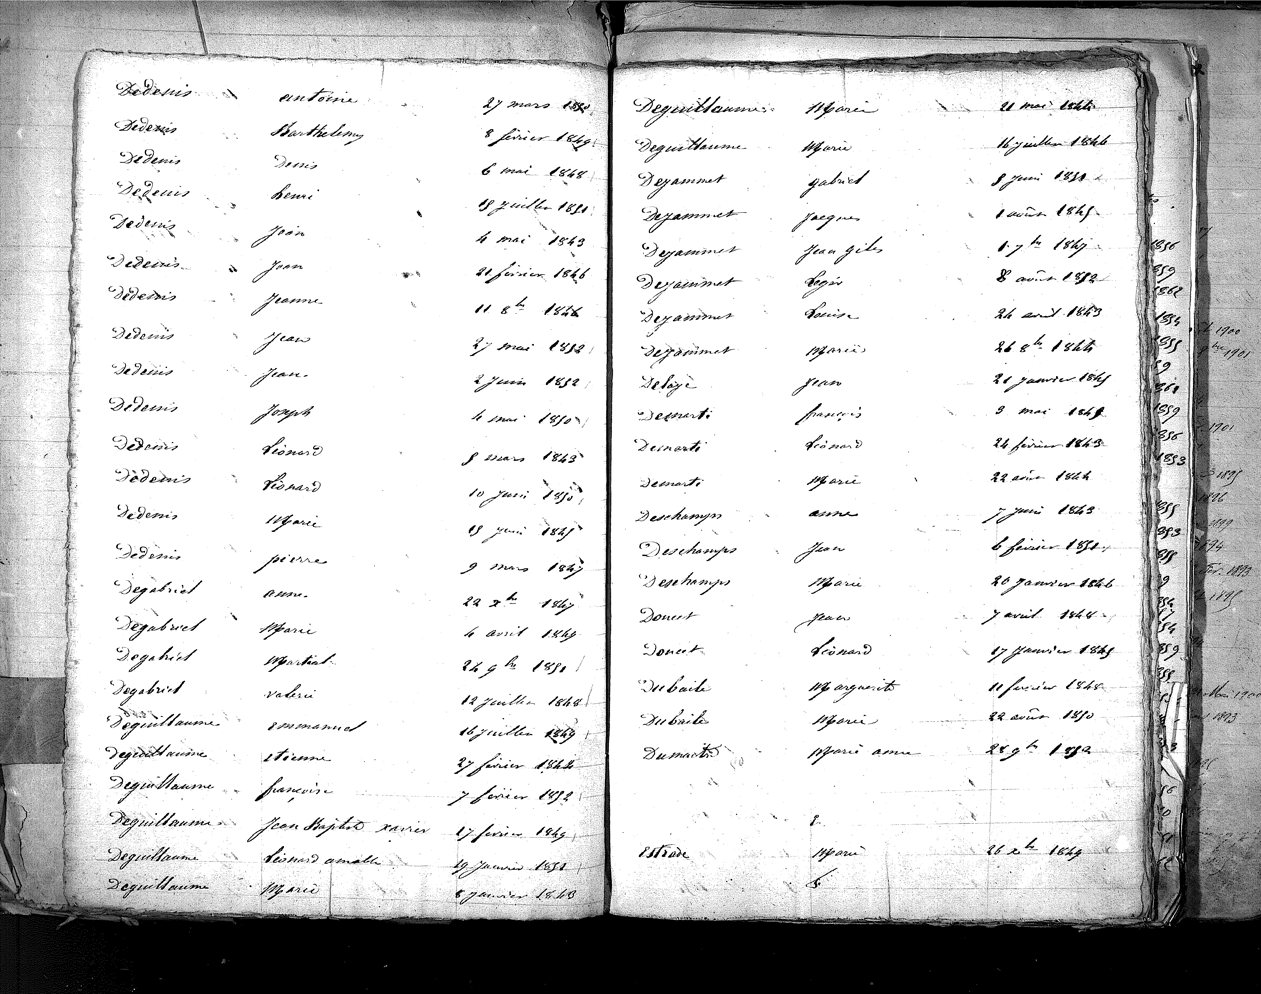 Dedenis antoine 27 mars 1850
Dedenis Barthelemy 8 février 1849
Dedenis Denis 6 mai 1848
Dedenis henri 15 juillet 1851
Dedenis Jean 4 mai 1843
Dedenis Jean 21 février 1846
Dedenis Jeanne 11 8bre 1846
Dedenis Jean 27 mai 1852
Dedenis Jean 2 juin 1852
Dedenis Joseph 4 mai 1850
Dedenis Léonard 5 mars 1843
Dedenis Léonard 10 juin 1850
Dedenis Marie 15 juin 1845
Dedenis pierre 9 mars 1847
Degabriel anne 22 xbre 1847
Degabriel Marie 4 avril 1849
Degabriel Martial 24 9bre 1851
Degabriel valerie 12 juillet 1848
Deguillaume Emmanuel 16 juillet 1849
Deguillaume etienne 27 février 1842
Deguillaume françoise 7 février 1852
Deguillaume Jean Baptiste xavier 17 février 1849
Deguillaume Léonard amable 19 Janvier 1851
Deguillaume Marie 8 Janvier 1843
Deguillaume Marie 21 mai 1844
Deguillaume Marie 16 juillet 1846
Dejammet gabriel 8 juin 1851
Dejammet Jacques 1 août 1845
Dejammet Jean giles 1 7bre 1847
Dejammet Leger 8 août 1852
Dejammet Louise 24 avril 1843
Dejammet Marie 26 8bre 1844
Delage Jean 21 Janvier 1845
Demarti françois 3 mai 1845
Demarti Léonard 24 février 1843
Demarti Marie 22 août 1844
Deschamps anne 7 juin 1843
Deschamps Jean 6 février 1851
Deschamps Marie 20 Janvier 1846
Doucet Jean 7 avril 1848
Doucet Léonard 17 Janvier 1845
Dubaile Marguerite 11 février 1848
Dubaile Marie 22 août 1850
Dumartin Marie anne 28 9bre 1852
Estrade Marie 26 xbre 1849